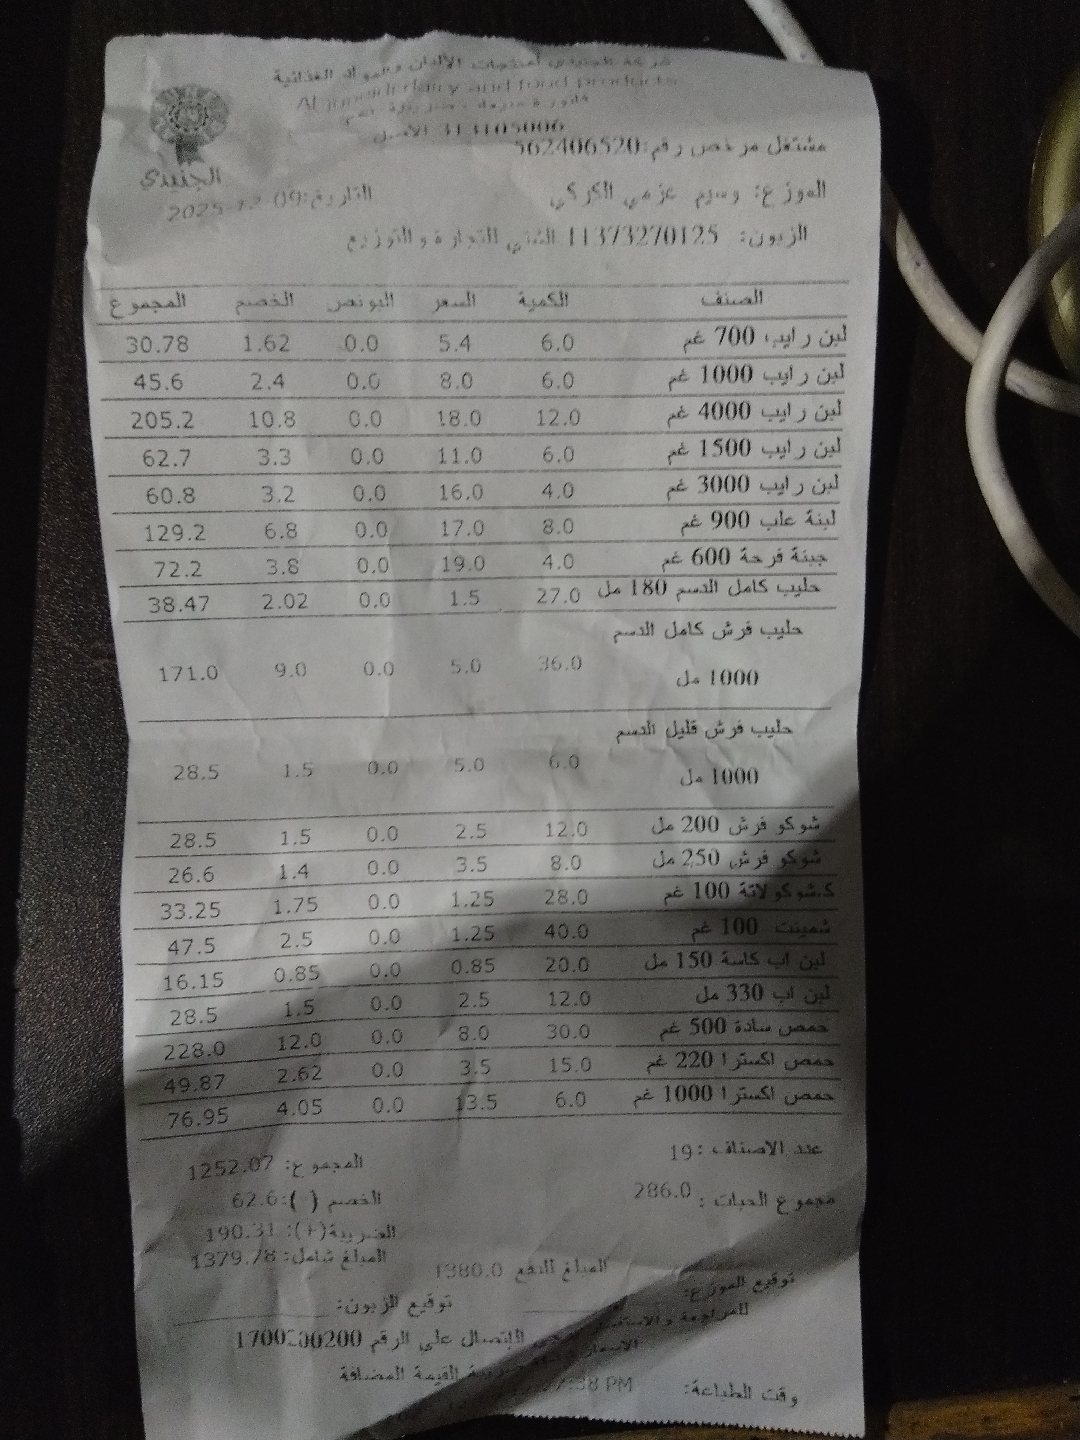 شركة الجنيدي لمنتجات الألبان والمواد الغذائية
Al juneidi dairy and food products
313105006 الأصل
مشتغل مرخص رقم:562406520
الجنيدي
الموزع: وسيم عزمي الكركي
التاريخ:09-12-2025
الزبون: 11373270125 الغني للتجارة والتوزيع
الصنف الكمية السعر البونص الخصم المجموع
لبن رايب 700 غم 6.0 5.4 0.0 1.62 30.78
لبن رايب 1000 غم 6.0 8.0 0.0 2.4 45.6
لبن رايب 4000 غم 12.0 18.0 0.0 10.8 205.2
لبن رايب 1500 غم 6.0 11.0 0.0 3.3 62.7
لبن رايب 3000 غم 4.0 16.0 0.0 3.2 60.8
لبنة علب 900 غم 8.0 17.0 0.0 6.8 129.2
جبنة فرحة 600 غم 4.0 19.0 0.0 3.8 72.2
حليب كامل الدسم 180 مل 27.0 1.5 0.0 2.02 38.47
حليب فرش كامل الدسم
1000 مل 36.0 5.0 0.0 9.0 171.0
حليب فرش قليل الدسم
1000 مل 6.0 5.0 0.0 1.5 28.5
شوكو فرش 200 مل 12.0 2.5 0.0 1.5 28.5
شوكو فرش 250 مل 8.0 3.5 0.0 1.4 26.6
ك.شوكولاتة 100 غم 28.0 1.25 0.0 1.75 33.25
شمينت 100 غم 40.0 1.25 0.0 2.5 47.5
لبن اب كاسة 150 مل 20.0 0.85 0.0 0.85 16.15
لبن اب 330 مل 12.0 2.5 0.0 1.5 28.5
حمص سادة 500 غم 30.0 8.0 0.0 12.0 228.0
حمص اكسترا 220 غم 15.0 3.5 0.0 2.62 49.87
حمص اكسترا 1000 غم 6.0 13.5 0.0 4.05 76.95
عدد الاصناف :19
المجموع: 1252.07
مجموع الحبات : 286.0
الخصم ( ):62.6
الضريبة(+): 190.31
المبلغ شامل: 1379.78
المبلغ للدفع 1380.0
توقيع الموزع:
توقيع الزبون:
للمراجعة الإتصال على الرقم 1700200200
القيمة المضافة
وقت الطباعة: PM